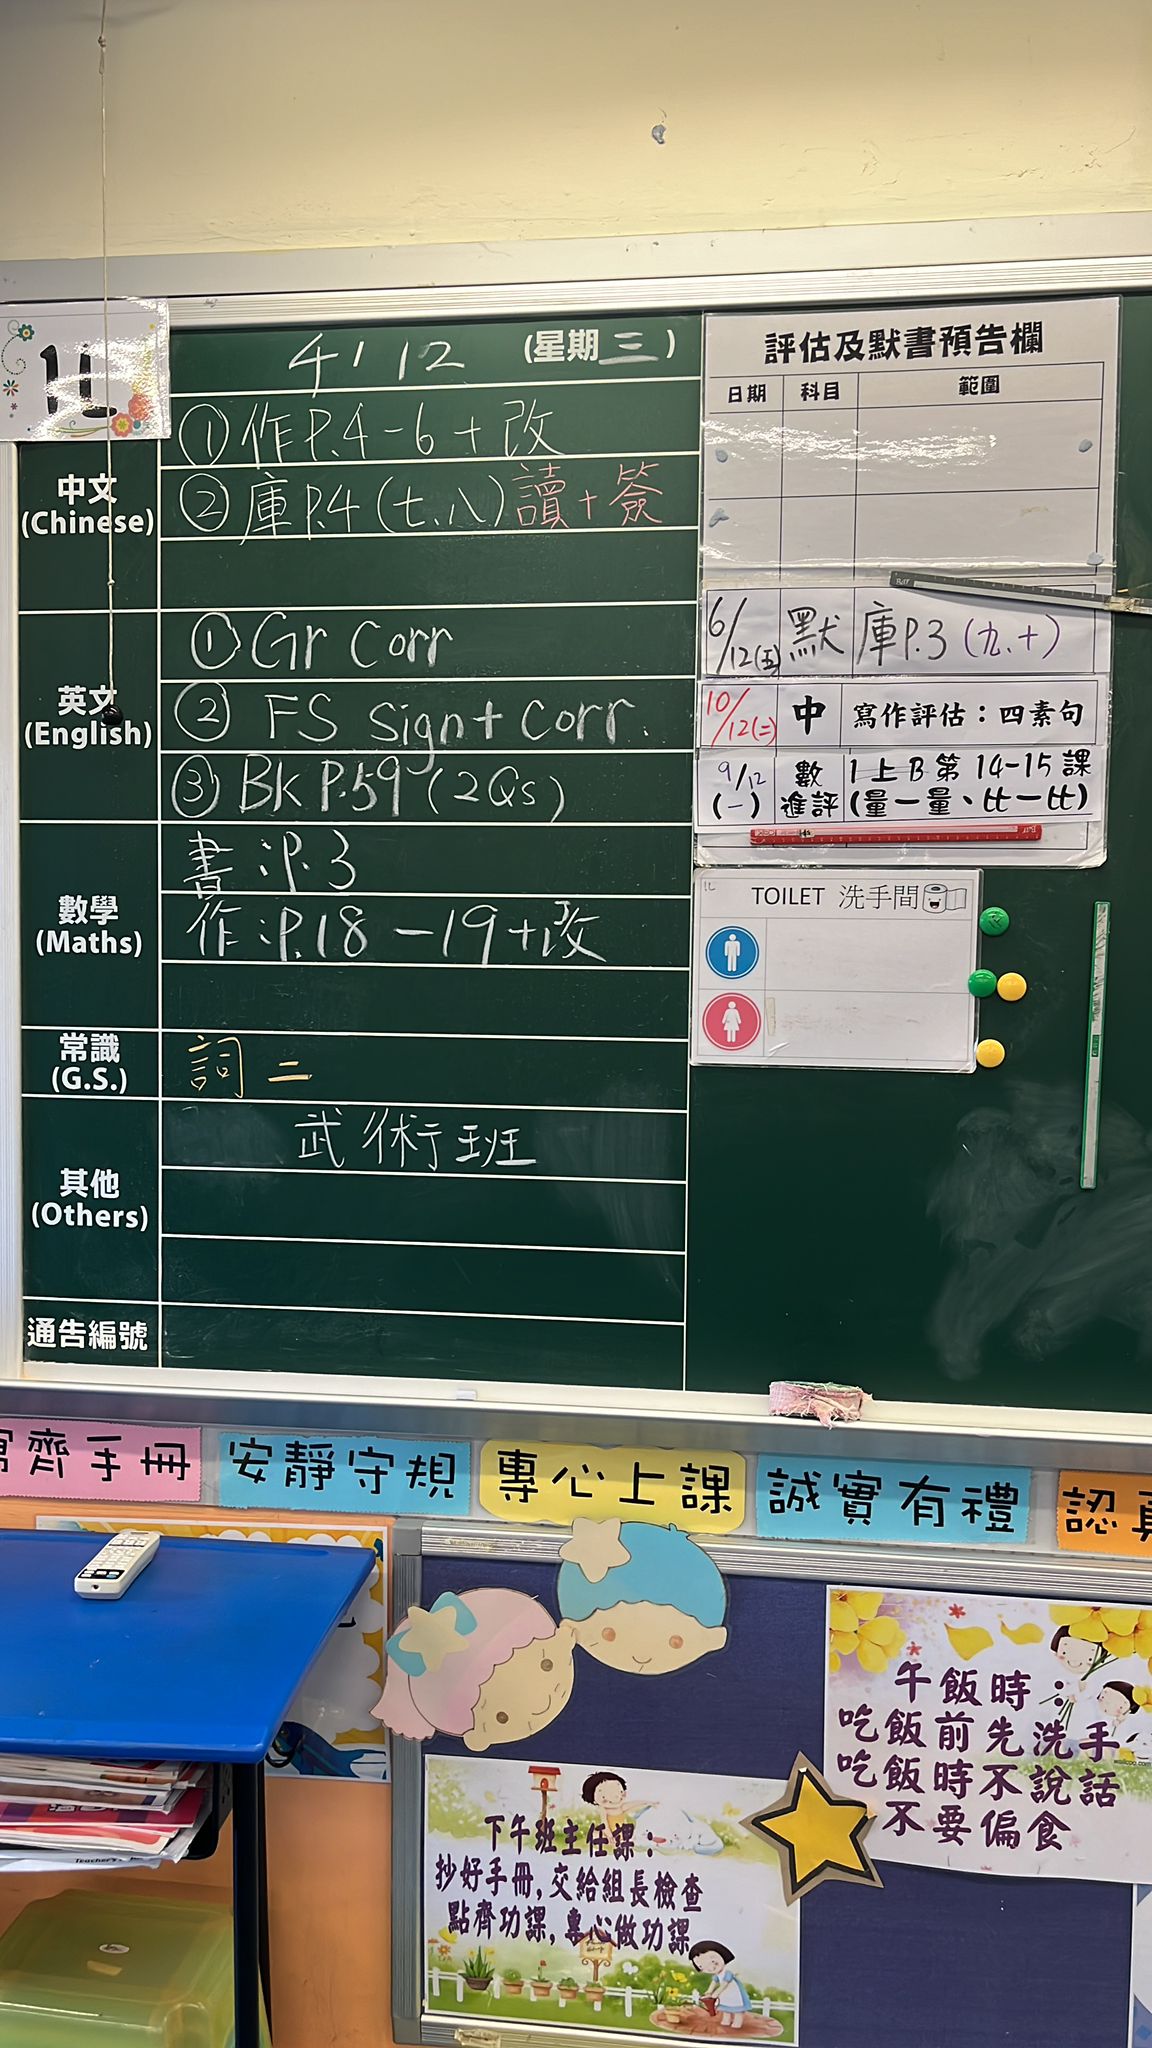 1L
4/12 (星期三)
中文
(Chinese)
①作P.4-6+改
②庫P.4(七、八)讀+簽
英文
(English)
①Gr Corr
②FS Sign+Corr.
③BK P.59 (2Qs)
數學
(Maths)
書:P.3
作:P.18-19+改
常識
(G.S.)
詞二
其他
(Others)
武術班
通告編號
評估及默書預告欄
日期 科目 範圍
6/12(五) 默 庫P.3(九、十)
10/12(二) 中 寫作評估：四素句
9/12(一) 數 1上B第14-15課
進評 (量一量、比一比)
1L
TOILET 洗手間
齊手冊
安靜守規
專心上課
誠實有禮
認真
午飯時：
吃飯前先洗手
吃飯時不說話
不要偏食
下午班主任課：
抄好手冊,交給組長檢查
點齊功課,專心做功課